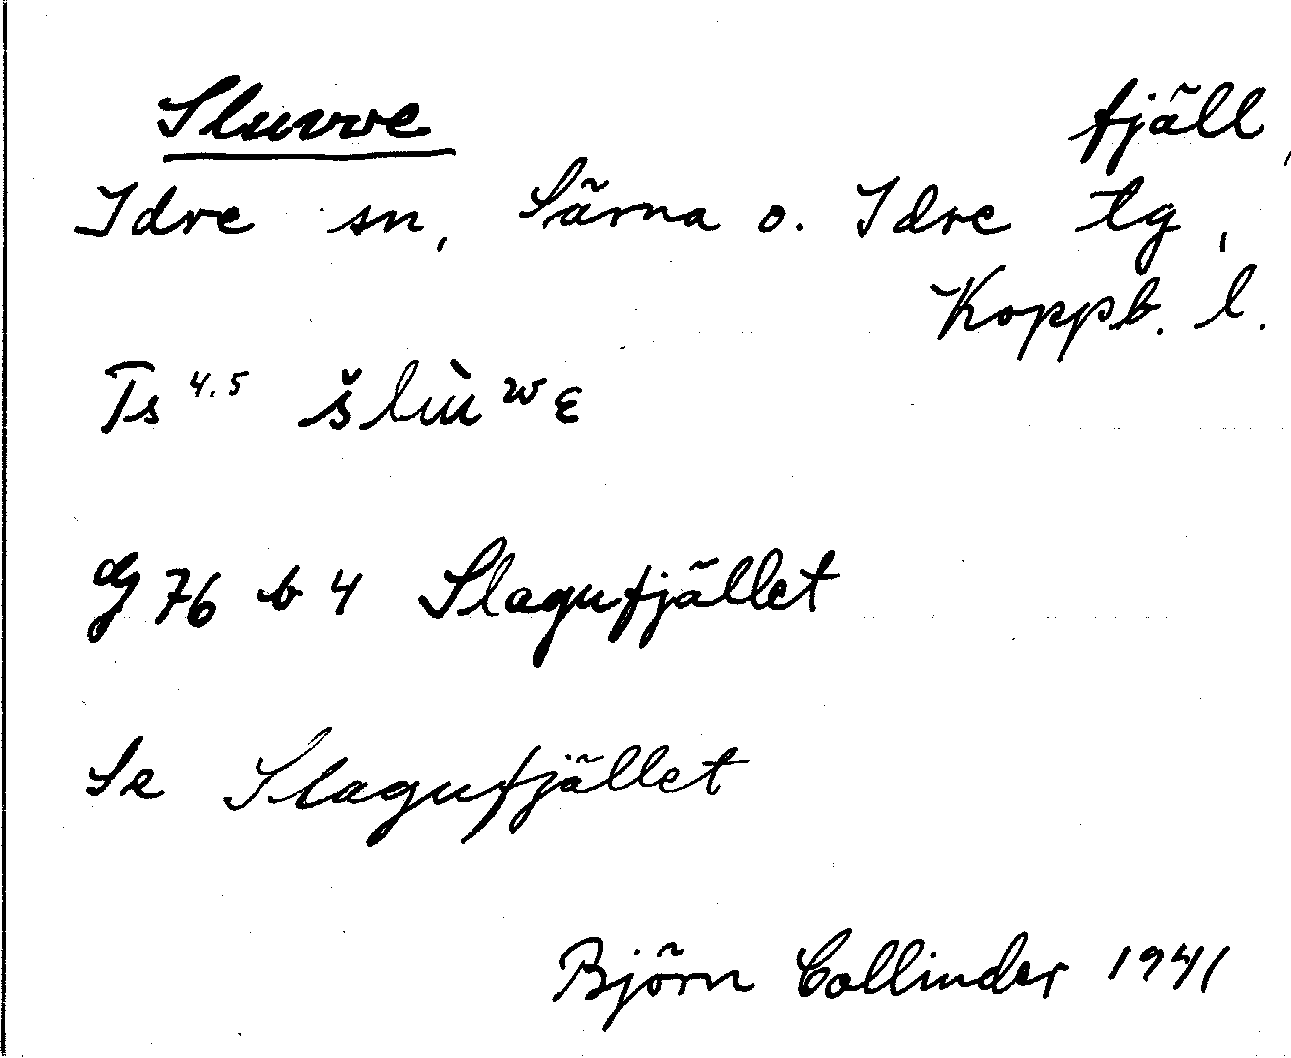 Sluvve fjäll,
Idre sn, Särna o. Idre tg,
Koppb. l.
Ts 4.5 šlu̇̀wε
G 76 b 4 Slagufjället
Se Slagufjället
Björn Collinder 1941